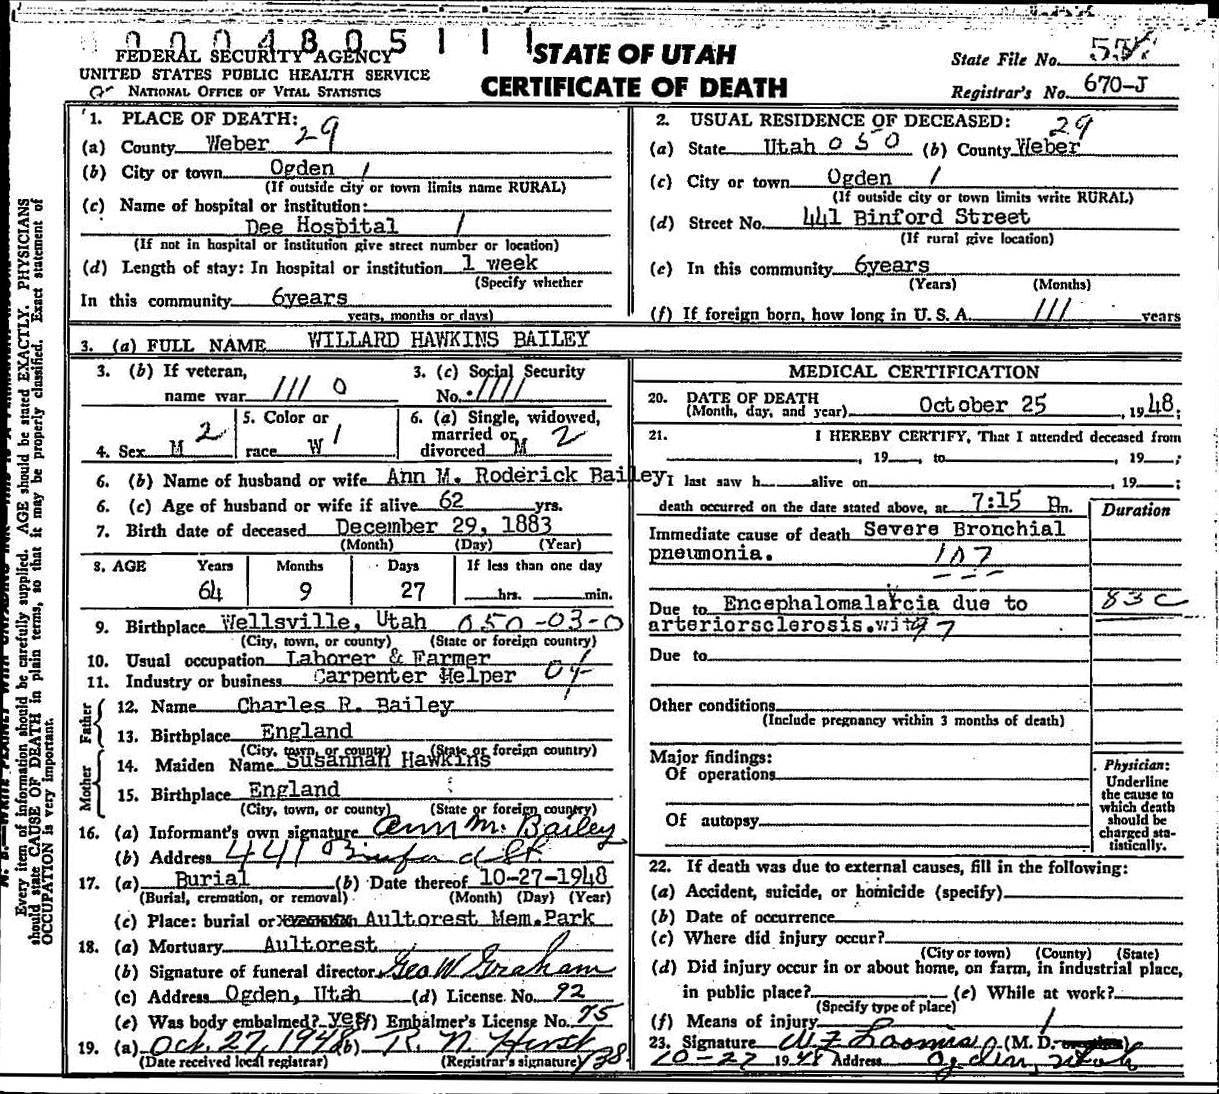 0 0 0 4 8 0 5 1 1 1
FEDERAL SECURITY AGENCY
UNITED STATES PUBLIC HEALTH SERVICE
NATIONAL OFFICE OF VITAL STATISTICS
STATE OF UTAH
CERTIFICATE OF DEATH
State File No.
Registrar's No. 670-J
1. PLACE OF DEATH: 29
(a) County Weber
(b) City or town Ogden 1
(If outside city or town limits name RURAL)
(c) Name of hospital or institution:
Dee Hospital 1
(If not in hospital or institution give street number or location)
(d) Length of stay: In hospital or institution 1 week
(Specify whether
In this community 6years
years, months or days)
2. USUAL RESIDENCE OF DECEASED: 29
(a) State Utah 050 (b) County Weber
(c) City or town Ogden 1
(If outside city or town limits write RURAL)
(d) Street No. 441 Binford Street
(If rural give location)
(e) In this community 6years
(Years) (Months)
(f) If foreign born, how long in U. S. A. / / / years
3. (a) FULL NAME WILLARD HAWKINS BAILEY
3. (b) If veteran, name war / / / 0
3. (c) Social Security No. / / / /
4. Sex M 2
5. Color or race W 1
6. (a) Single, widowed, married or divorced M 2
6. (b) Name of husband or wife Ann M. Roderick Bailey
6. (c) Age of husband or wife if alive 62 yrs.
7. Birth date of deceased December 29, 1883
(Month) (Day) (Year)
8. AGE Years Months Days If less than one day
64 9 27 hrs. min.
9. Birthplace Wellsville, Utah 050-03-0
(City, town, or county) (State or foreign country)
10. Usual occupation Laborer & Farmer
11. Industry or business Carpenter Helper 04
Father
12. Name Charles R. Bailey
13. Birthplace England
(City, town, or county) (State or foreign country)
Mother
14. Maiden Name Susannah Hawkins
15. Birthplace England
(City, town, or county) (State or foreign country)
16. (a) Informant's own signature Ann M. Bailey
(b) Address 441 Binford St.
17. (a) Burial (b) Date thereof 10-27-1948
(Burial, cremation, or removal) (Month) (Day) (Year)
(c) Place: burial or Aultorest Mem.Park
18. (a) Mortuary Aultorest
(b) Signature of funeral director Geo W Graham
(c) Address Ogden, Utah (d) License No. 92
(e) Was body embalmed? yes (f) Embalmer's License No. 75
19. (a) Oct. 27, 1948 (b) R. N. Hirst
(Date received local registrar) (Registrar's signature) 438
MEDICAL CERTIFICATION
20. DATE OF DEATH
(Month, day, and year) October 25, 1948;
21. I HEREBY CERTIFY, That I attended deceased from
, 19 , to , 19 ;
I last saw h alive on , 19 ;
death occurred on the date stated above, at 7:15 P m.
Duration
Immediate cause of death Severe Bronchial
pneumonia. 107
Due to Encephalomalarcia due to 83c
arteriorsclerosis. 97
Due to
Other conditions
(Include pregnancy within 3 months of death)
Major findings:
Of operations
Of autopsy
Physician:
Underline
the cause to
which death
should be
charged sta-
tistically.
22. If death was due to external causes, fill in the following:
(a) Accident, suicide, or homicide (specify)
(b) Date of occurrence
(c) Where did injury occur?
(City or town) (County) (State)
(d) Did injury occur in or about home, on farm, in industrial place,
in public place? (e) While at work?
(Specify type of place)
(f) Means of injury 1
23. Signature W F Loomis (M. D.
10-27 1948 Address Ogden, Utah
Every item of information should be carefully supplied. AGE should be stated EXACTLY. PHYSICIANS
should state CAUSE OF DEATH in plain terms, so that it may be properly classified. Exact statement of
OCCUPATION is very important.